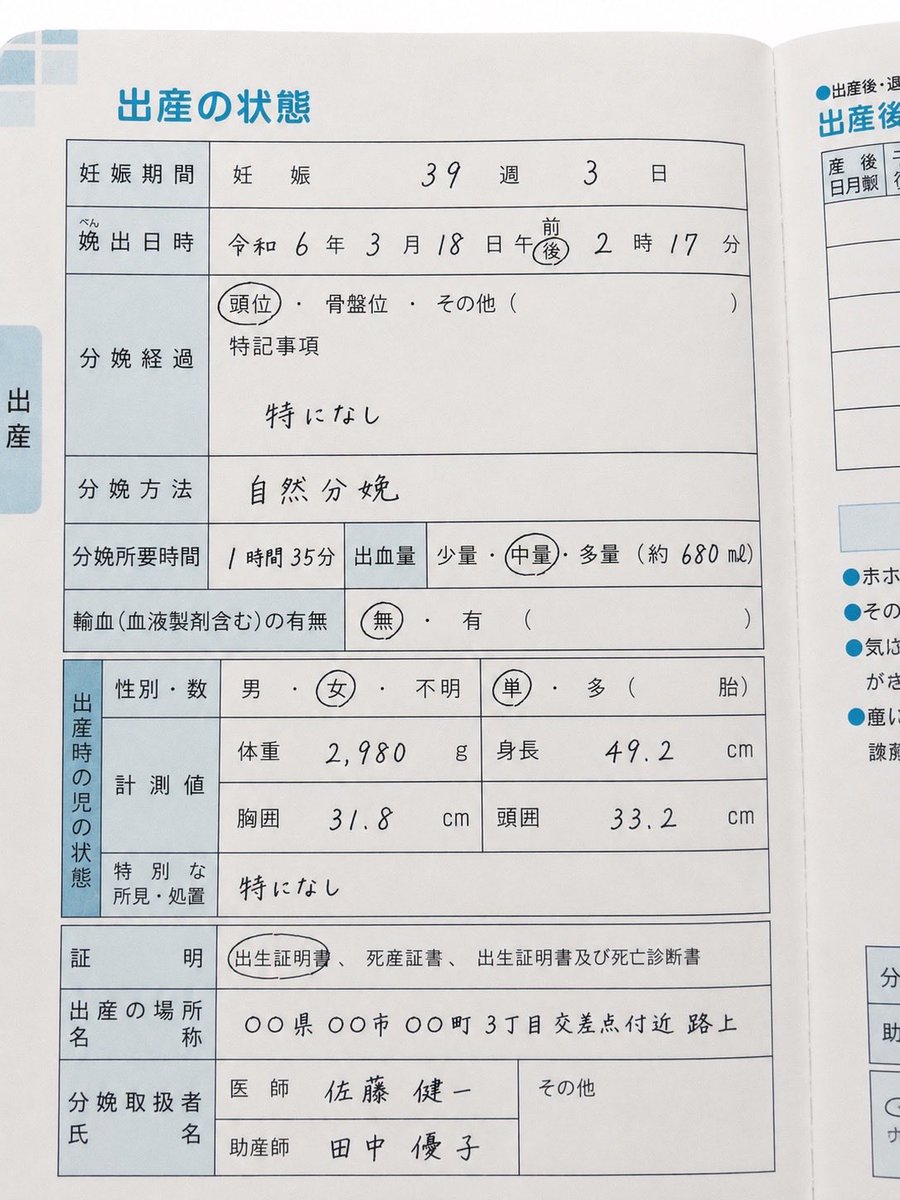 出産の状態
妊娠期間 妊娠 39 週 3 日
べん
娩出日時 令和 6 年 3 月 18 日 午 前 後 2 時 17 分
頭位 ・ 骨盤位 ・ その他 ( )
分娩経過 特記事項
特になし
分娩方法 自然分娩
分娩所要時間 1時間35分 出血量 少量・中量・多量 (約 680 ml)
輸血(血液製剤含む)の有無 無 ・ 有 ( )
出産時の児の状態
性別・数 男 ・ 女 ・ 不明 単 ・ 多 ( 胎)
計測値 体重 2,980 g 身長 49.2 cm
胸囲 31.8 cm 頭囲 33.2 cm
特別な
所見・処置 特になし
証明 出生証明書、死産証書、出生証明書及び死亡診断書
出産の場所
名称 〇〇県 〇〇市 〇〇町 3丁目 交差点付近 路上
分娩取扱者
氏名 医師 佐藤 健一 その他
助産師 田中 優子
出産
●出産後・退
出産後
産後
日月
●その
がさ
分
助